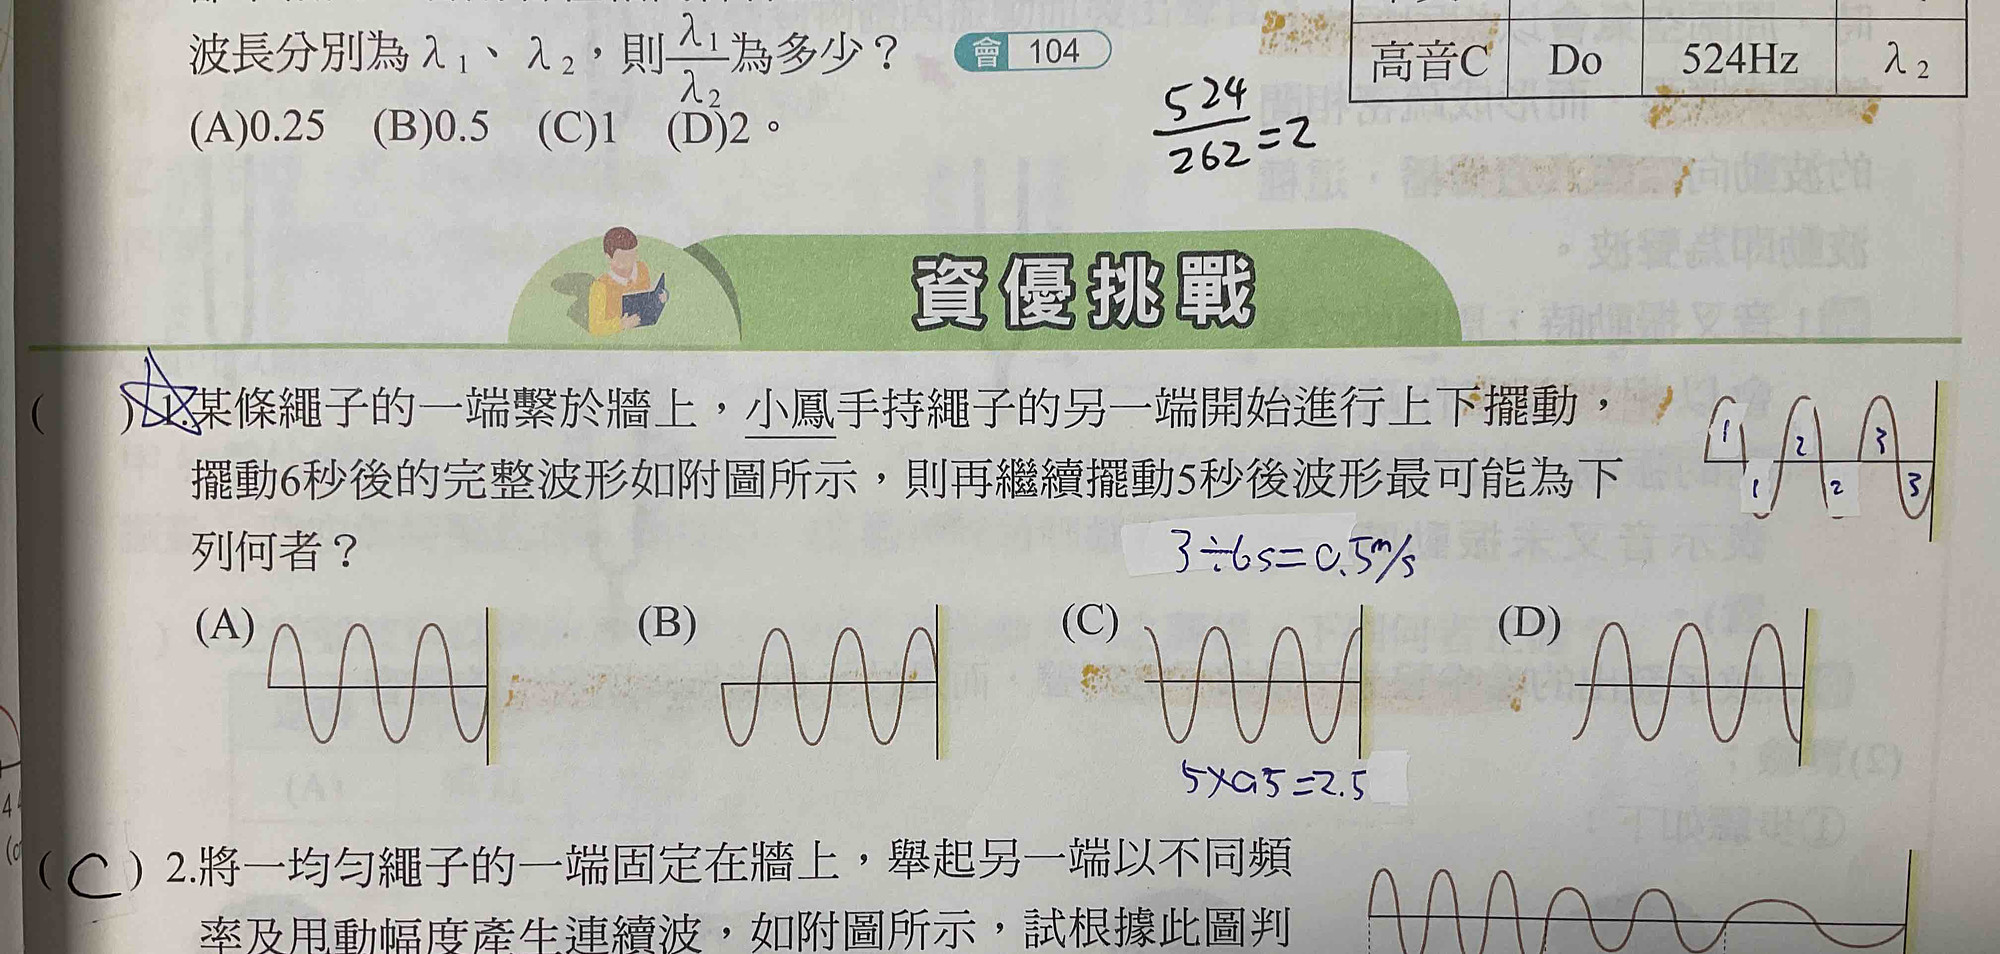 波長分別為λ1、λ2,則λ1/λ2為多少? 會 104
(A)0.25 (B)0.5 (C)1 (D)2。
高音C Do 524Hz λ2
524/262=2
資優挑戰
( )1.某條繩子的一端繫於牆上,小鳳手持繩子的另一端開始進行上下擺動,
擺動6秒後的完整波形如附圖所示,則再繼續擺動5秒後波形最可能為下
列何者?
1 2 3
1 2 3
3÷6s=0.5m/s
(A) (B) (C) (D)
5×0.5=2.5
(C)2.將一均勻繩子的一端固定在牆上,舉起另一端以不同頻
率及甩動幅度產生連續波,如附圖所示,試根據此圖判